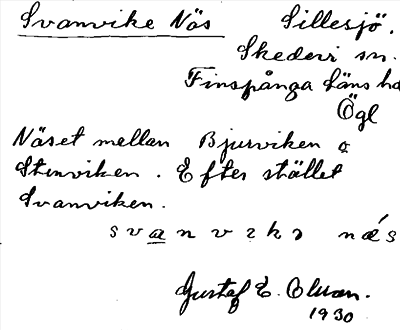 Svanvike Näs Sillesjö.
Skedevi sn.
Finspånga läns hd
Ögl
Näset mellan Bjurviken o
Stenviken. Efter stället
Svanviken.
svanvikə næs
Gustaf E.
1930